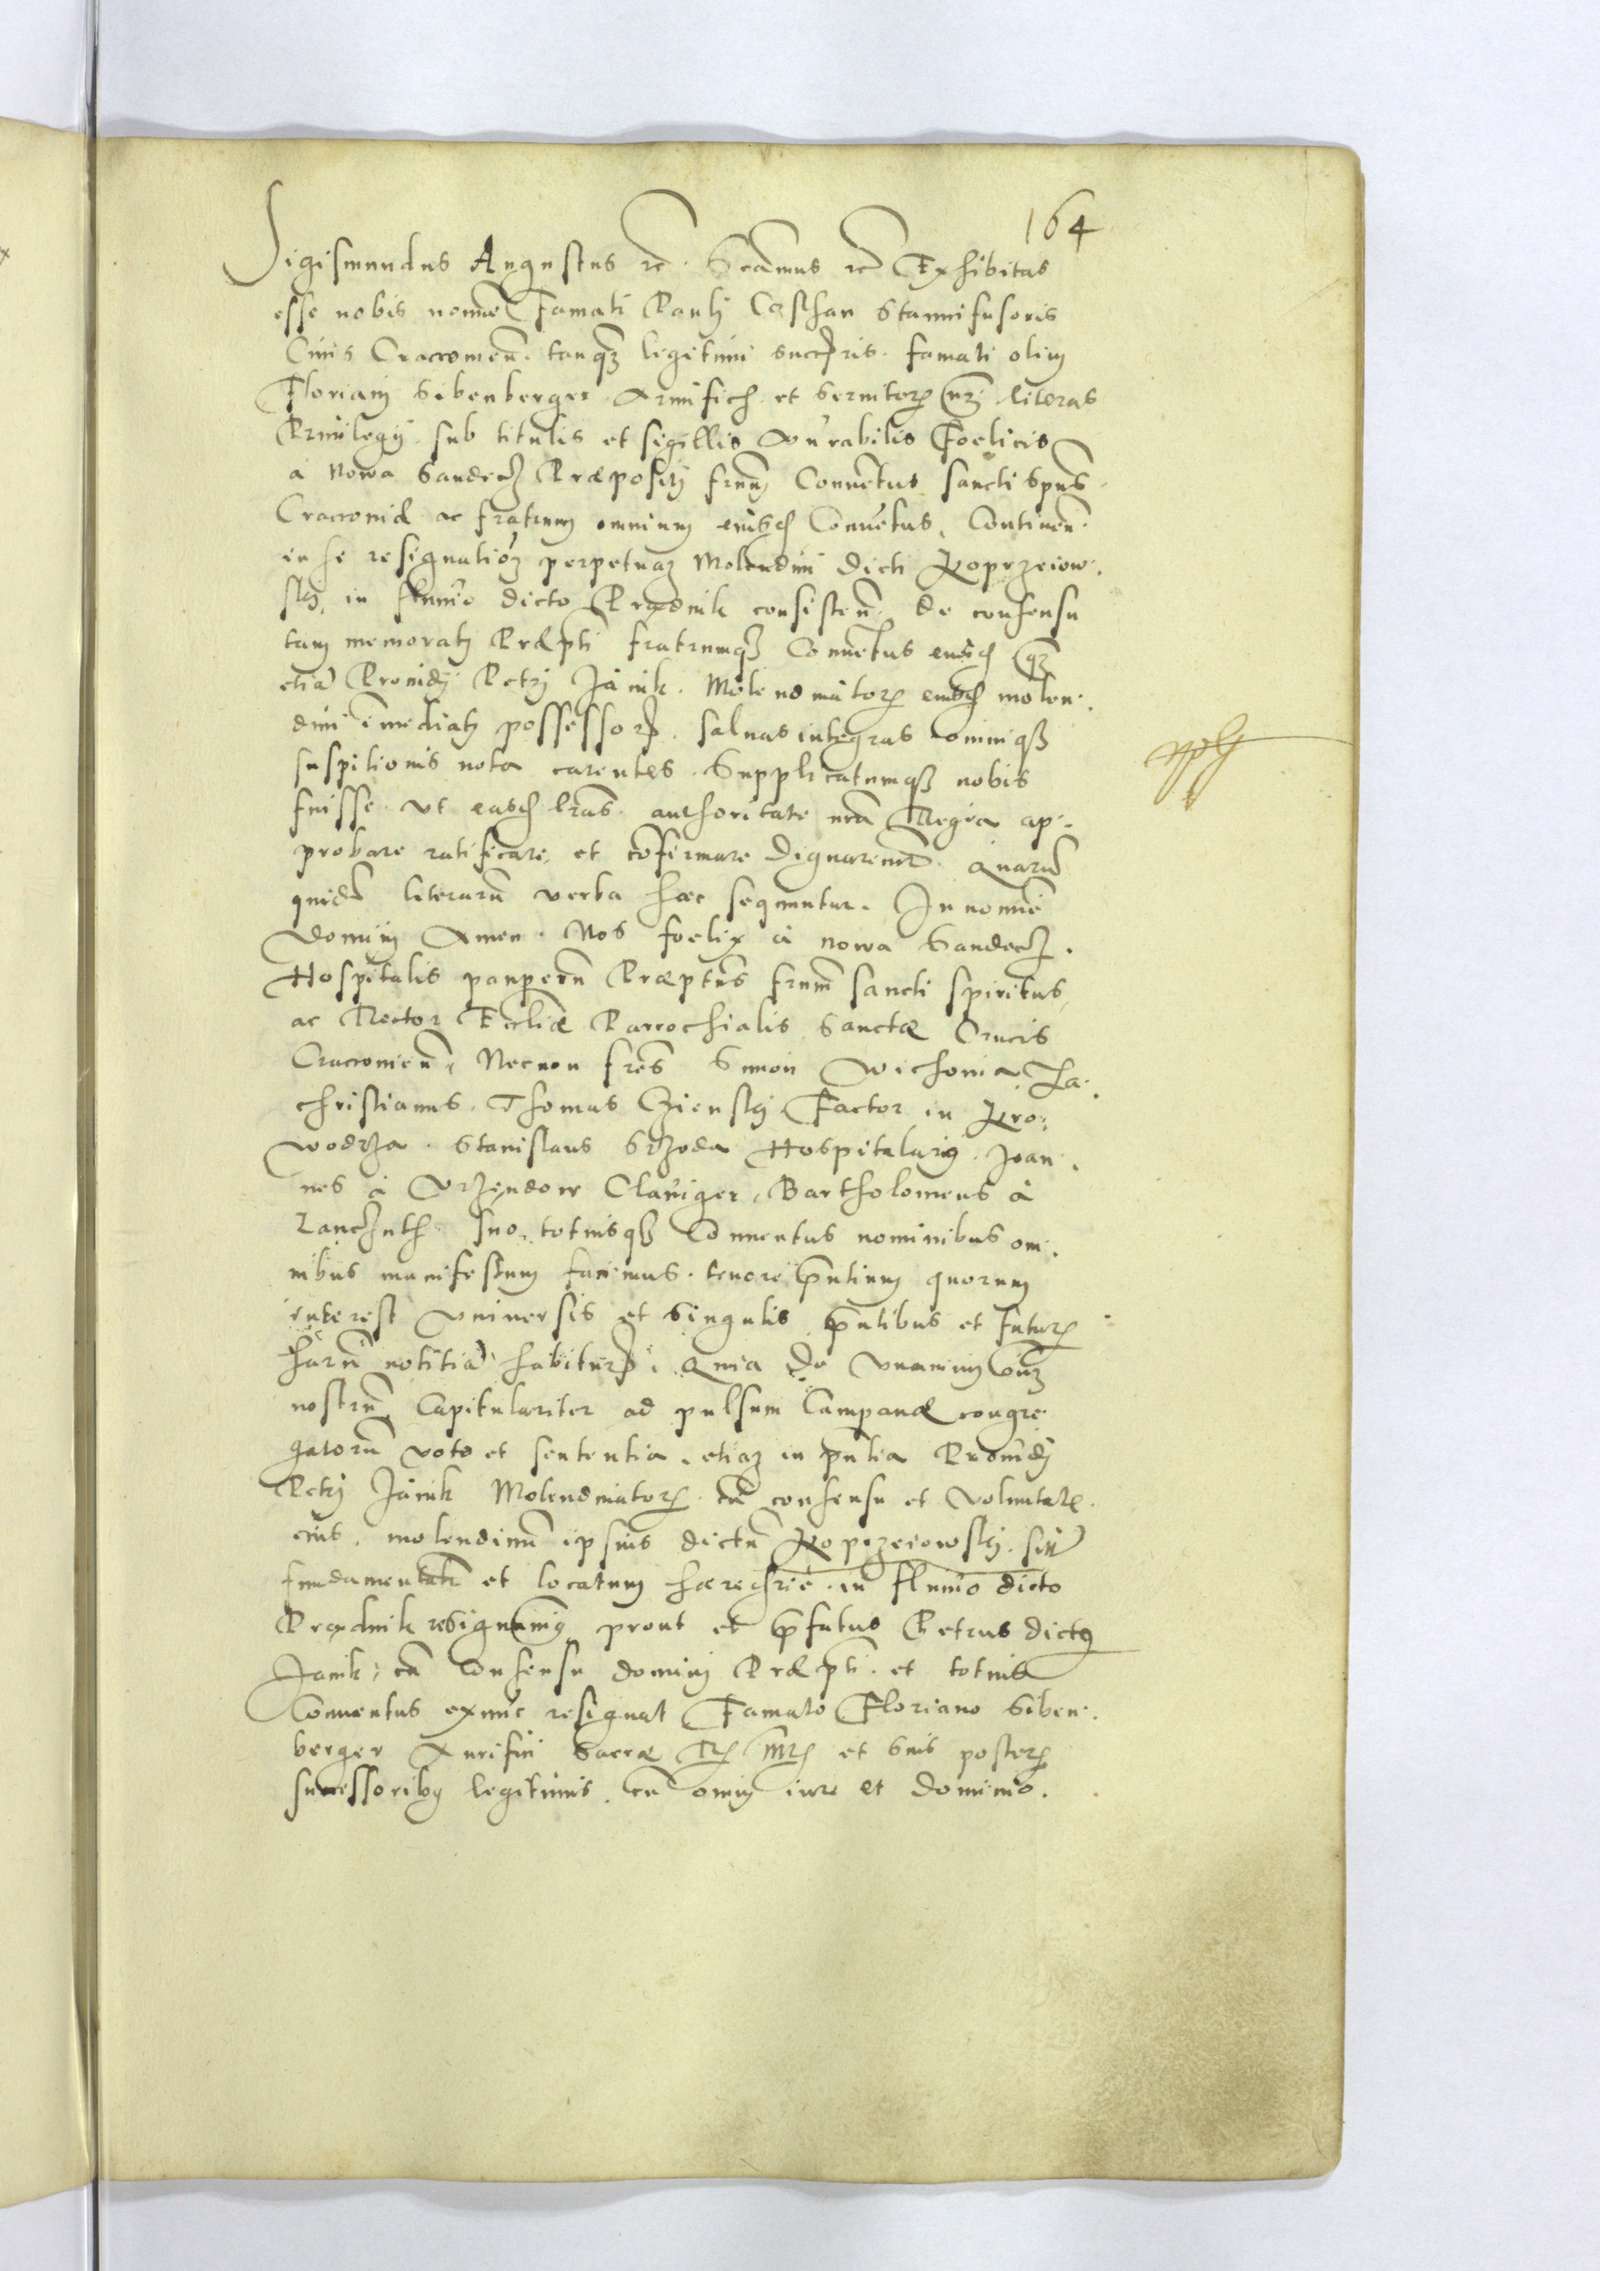 164
Sigismundus Augustus rc. Scamus rc Exhibitas
esse nobis nomine Famati Pauli Casthan Stannifusoris
Ciuis Cracovien. tanq3 legitimi succris. famati olim
Floriani Sibenberger Aurifich et Seruitoris nri literas
Priuilegij sub titulis et sigillis Vnrabilis Foelicis
a Nowa Sandecz Præpositj frum Conuetus sancti Spus
Cracouiæ ac fratrum omnium eiusd Conuetus, Continen.
in se resignation perpetuam Molendini dicti Poprzeiow.
skj, in fluuio dicto Prądnik consisten. de consensu
tam memorati Præpti fratrumq3 Conuetus eiusd q3
etia Prouidj Petri Janik. Molendinatoris eiusd molen.
dini imediatj possessoris. saluas integras ominiq3
suspitionis nota carentes. Supplicatumq3 nobis
fuisse vt easd lras authoritate nra Regia ap-
probare ratificare, et cofirmare dignaremur. Quaru
quide literaru verba hæc sequuntur. In nomie
Domini Amen. Nos foelix à nowa Sandecz.
Hospitalis pauperu Præptus frum sancti spiritus,
ac Rector Eccliæ Parrochialis Sanctæ Crucis
Cracouien, Necnon fres Simon Wichonia, Za.
christianus. Thomas Zienskj Factor in Pro:
wodza. Stanislaus Srzoda Hospitalarig. Joan.
nes à Vrzendow Clauiger, Bartholomeus à
Lanczuth suo, totiusq3 Conuentus nominibus om.
nibus manifestum facimus. tenore pntium quorum
interest vniuersis et singulis pntibus et futuris
haru notitia habituris. Quia de vnanimi oium
nostru, Capitulariter ad pulsum Campanæ congre
gatoru voto et sententia. etiam in pntia Prouidj
Petri Janik Molendinatoris. cu consensu et voluntate.
eius. molendinu ipsius dictu Poprzeiowskj. situ
fundamentatu et locatum in fluuio dicto
Prądnik resignauimg prout et pfatus Petrus dictg
Janik, cu consensu domini Præpti. et totius
Conuentus exnuc resignat Famato Floriano Siben.
berger Aurifici Sacræ Rs Mrs et suis posteris
successoribg legitimis. cu omni iure et dominio.